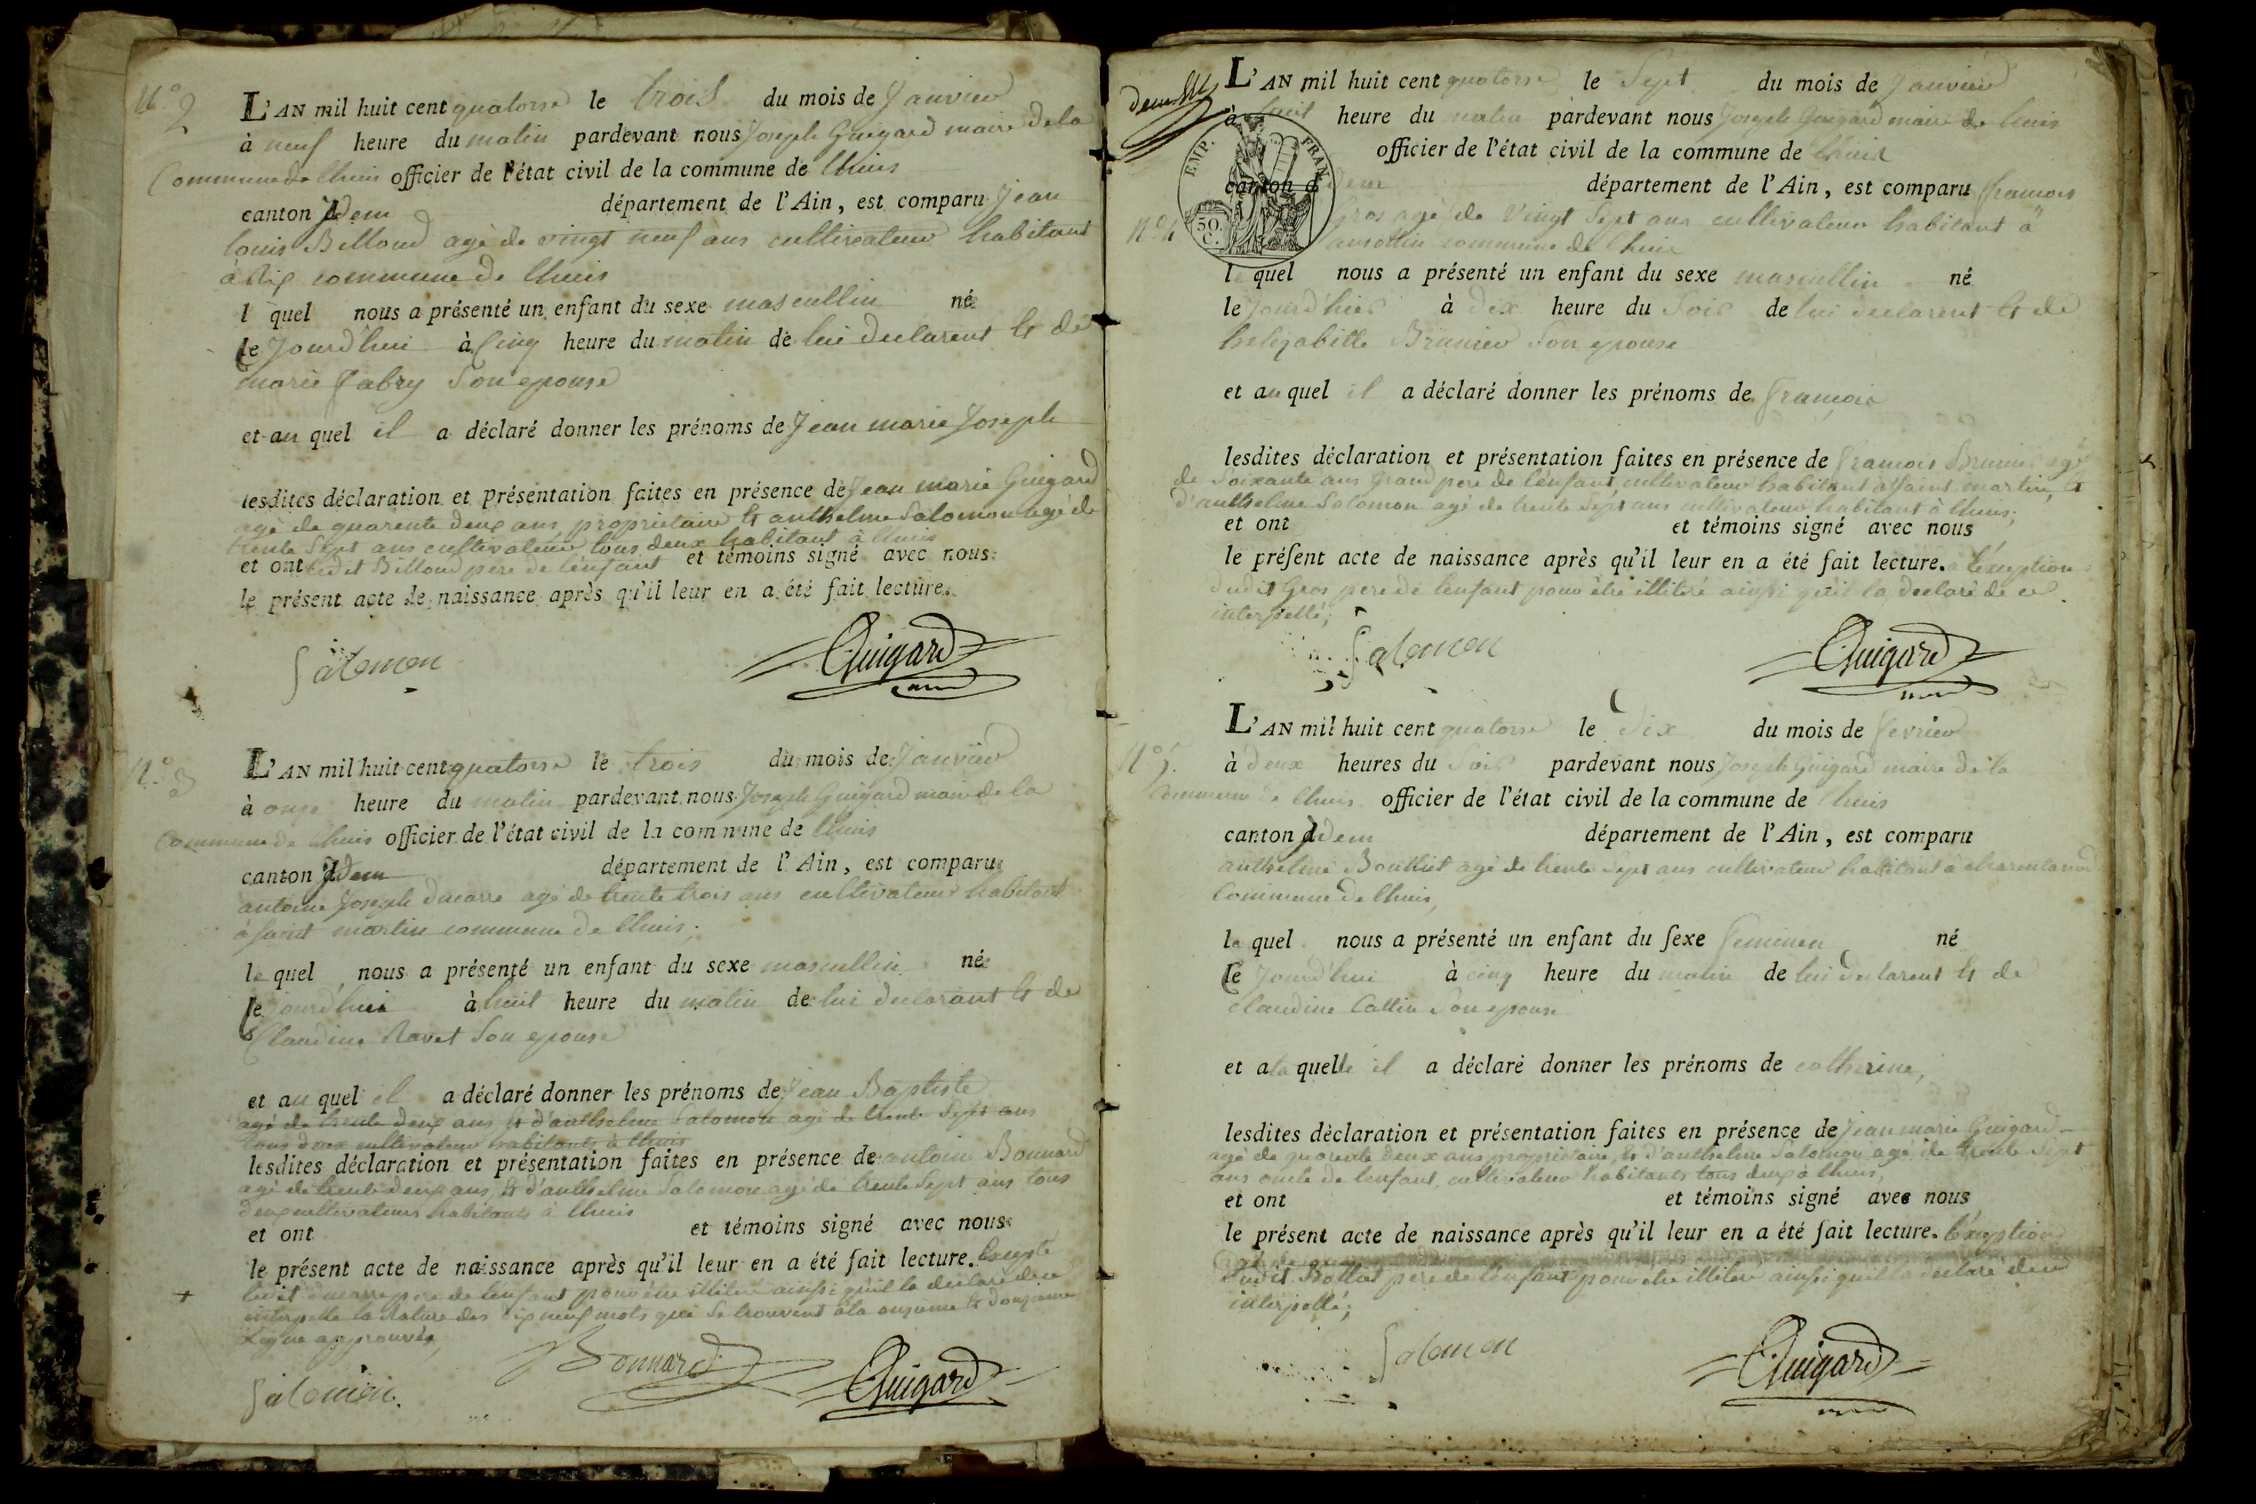 N.° 2
L'AN mil huit cent quatorse le trois du mois de Janvier
à neuf heure du matin pardevant nous Joseph Guigard maire de la
Commune de lhuis officier de l'état civil de la commune de lhuis
canton Idem département de l'Ain, est comparu Jean
louis Billoud agé de vingt neuf ans cultivateur habitant
à Rix commune de lhuis
l quel nous a présenté un enfant du sexe mascullin né
le Jourd'hui à Cinq heure du matin de lui declarent & de
marie fabry Son epouse
et au quel il a déclaré donner les prénoms de Jean marie Joseph
lesdites déclaration et présentation faites en présence de Jean marie Guigard
agé de quarente deux ans, proprietaire & anthelme Salomon agé de
trente Sept ans cultivateur tous deux habitant à lhuis
et ont ledit Billoud pere de l'enfant et témoins signé avec nous
le présent acte de naissance après qu'il leur en a été fait lecture.
Salomon Guigard
N.° 3
L'AN mil huit cent quatorse le trois du mois de Janvier
à onze heure du matin pardevant nous Joseph Guigard maire de la
Commune de lhuis officier de l'état civil de la commune de lhuis
canton Idem département de l'Ain, est comparu
antoine Joseph ducarre agé de trente trois ans cultivateur habitant
à saint martin commune de lhuis,
le quel nous a présenté un enfant du sexe mascullin né
le jourd'hui à huit heure du matin de lui declarant & de
Claudine Ravet Son epouse
et au quel il a déclaré donner les prénoms de Jean Baptiste
agé de trente deux ans & d'anthelme Salomon agé de trente Sept ans
tous deux cultivateur habitants à lhuis
lesdites déclaration et présentation faites en présence de antoine Bonnard
agé de trente deux ans, & d'anthelme Salomon agé de trente Sept ans tous
deux cultivateurs habitants à lhuis
et ont et témoins signé avec nous
le présent acte de naissance après qu'il leur en a été fait lecture. Excepté
ledit ducarre pere de l'enfant pour être illiteré ainsi qu'il la declaré de ce
interpellé la Rature des dix neuf mots qui Se trouvent à la onzieme & douzieme
Ligne approuvée,
Salomon Bonnard Guigard
N.° 4
L'AN mil huit cent quatorse le Sept du mois de Janvier
à huit heure du matin pardevant nous Joseph Guigard maire de lhuis
officier de l'état civil de la commune de lhuis
EMP. FRAN.
50 C.
canton d Idem département de l'Ain, est comparu francois
Gros agé de Vingt Sept ans cultivateur habitant à
ansollin commune de lhuis
l quel nous a présenté un enfant du sexe mascullin né
le jourd'hier à dix heure du Soir de lui declarent & de
Brunier Son epouse
et au quel il a déclaré donner les prénoms de françois
lesdites déclaration et présentation faites en présence de francois Brunier agé
de Soixante ans Grand pere de l'enfant, cultivateur habitant à saint martin, &
d'anthelme Salomon agé de trente Sept ans cultivateur habitant à lhuis,
et ont et témoins signé avec nous
le présent acte de naissance après qu'il leur en a été fait lecture. à l'exception
dudit Gros pere de l'enfant pour être illiteré ainsi qu'il la declaré de ce
interpellé,
Salomon Guigard
N.° 5.
L'AN mil huit cent quatorse le Six du mois de fevrier
à deux heures du Soir pardevant nous Joseph Guigard maire de la
Commune de lhuis officier de l'état civil de la commune de lhuis
canton Idem département de l'Ain, est comparu
anthelme agé de trente Sept ans cultivateur habitant à
Commune de lhuis,
le quel nous a présenté un enfant du sexe feminen né
le Jourd'hui à cinq heure du matin de lui declarent & de
claudine Cattin Son epouse
et a la quelle il a déclaré donner les prénoms de catherine,
lesdites déclaration et présentation faites en présence de Jean marie Guigard
agé de quarente deux ans proprietaire, & d'anthelme Salomon agé de trente Sept
ans oncle de l'enfant, cultivateur habitants tous deux à lhuis,
et ont et témoins signé avec nous
le présent acte de naissance après qu'il leur en a été fait lecture. l'exception
dudit pere de l'enfant pour etre illiteré ainsi qu'il la declaré de ce
interpellé,
Salomon Guigard